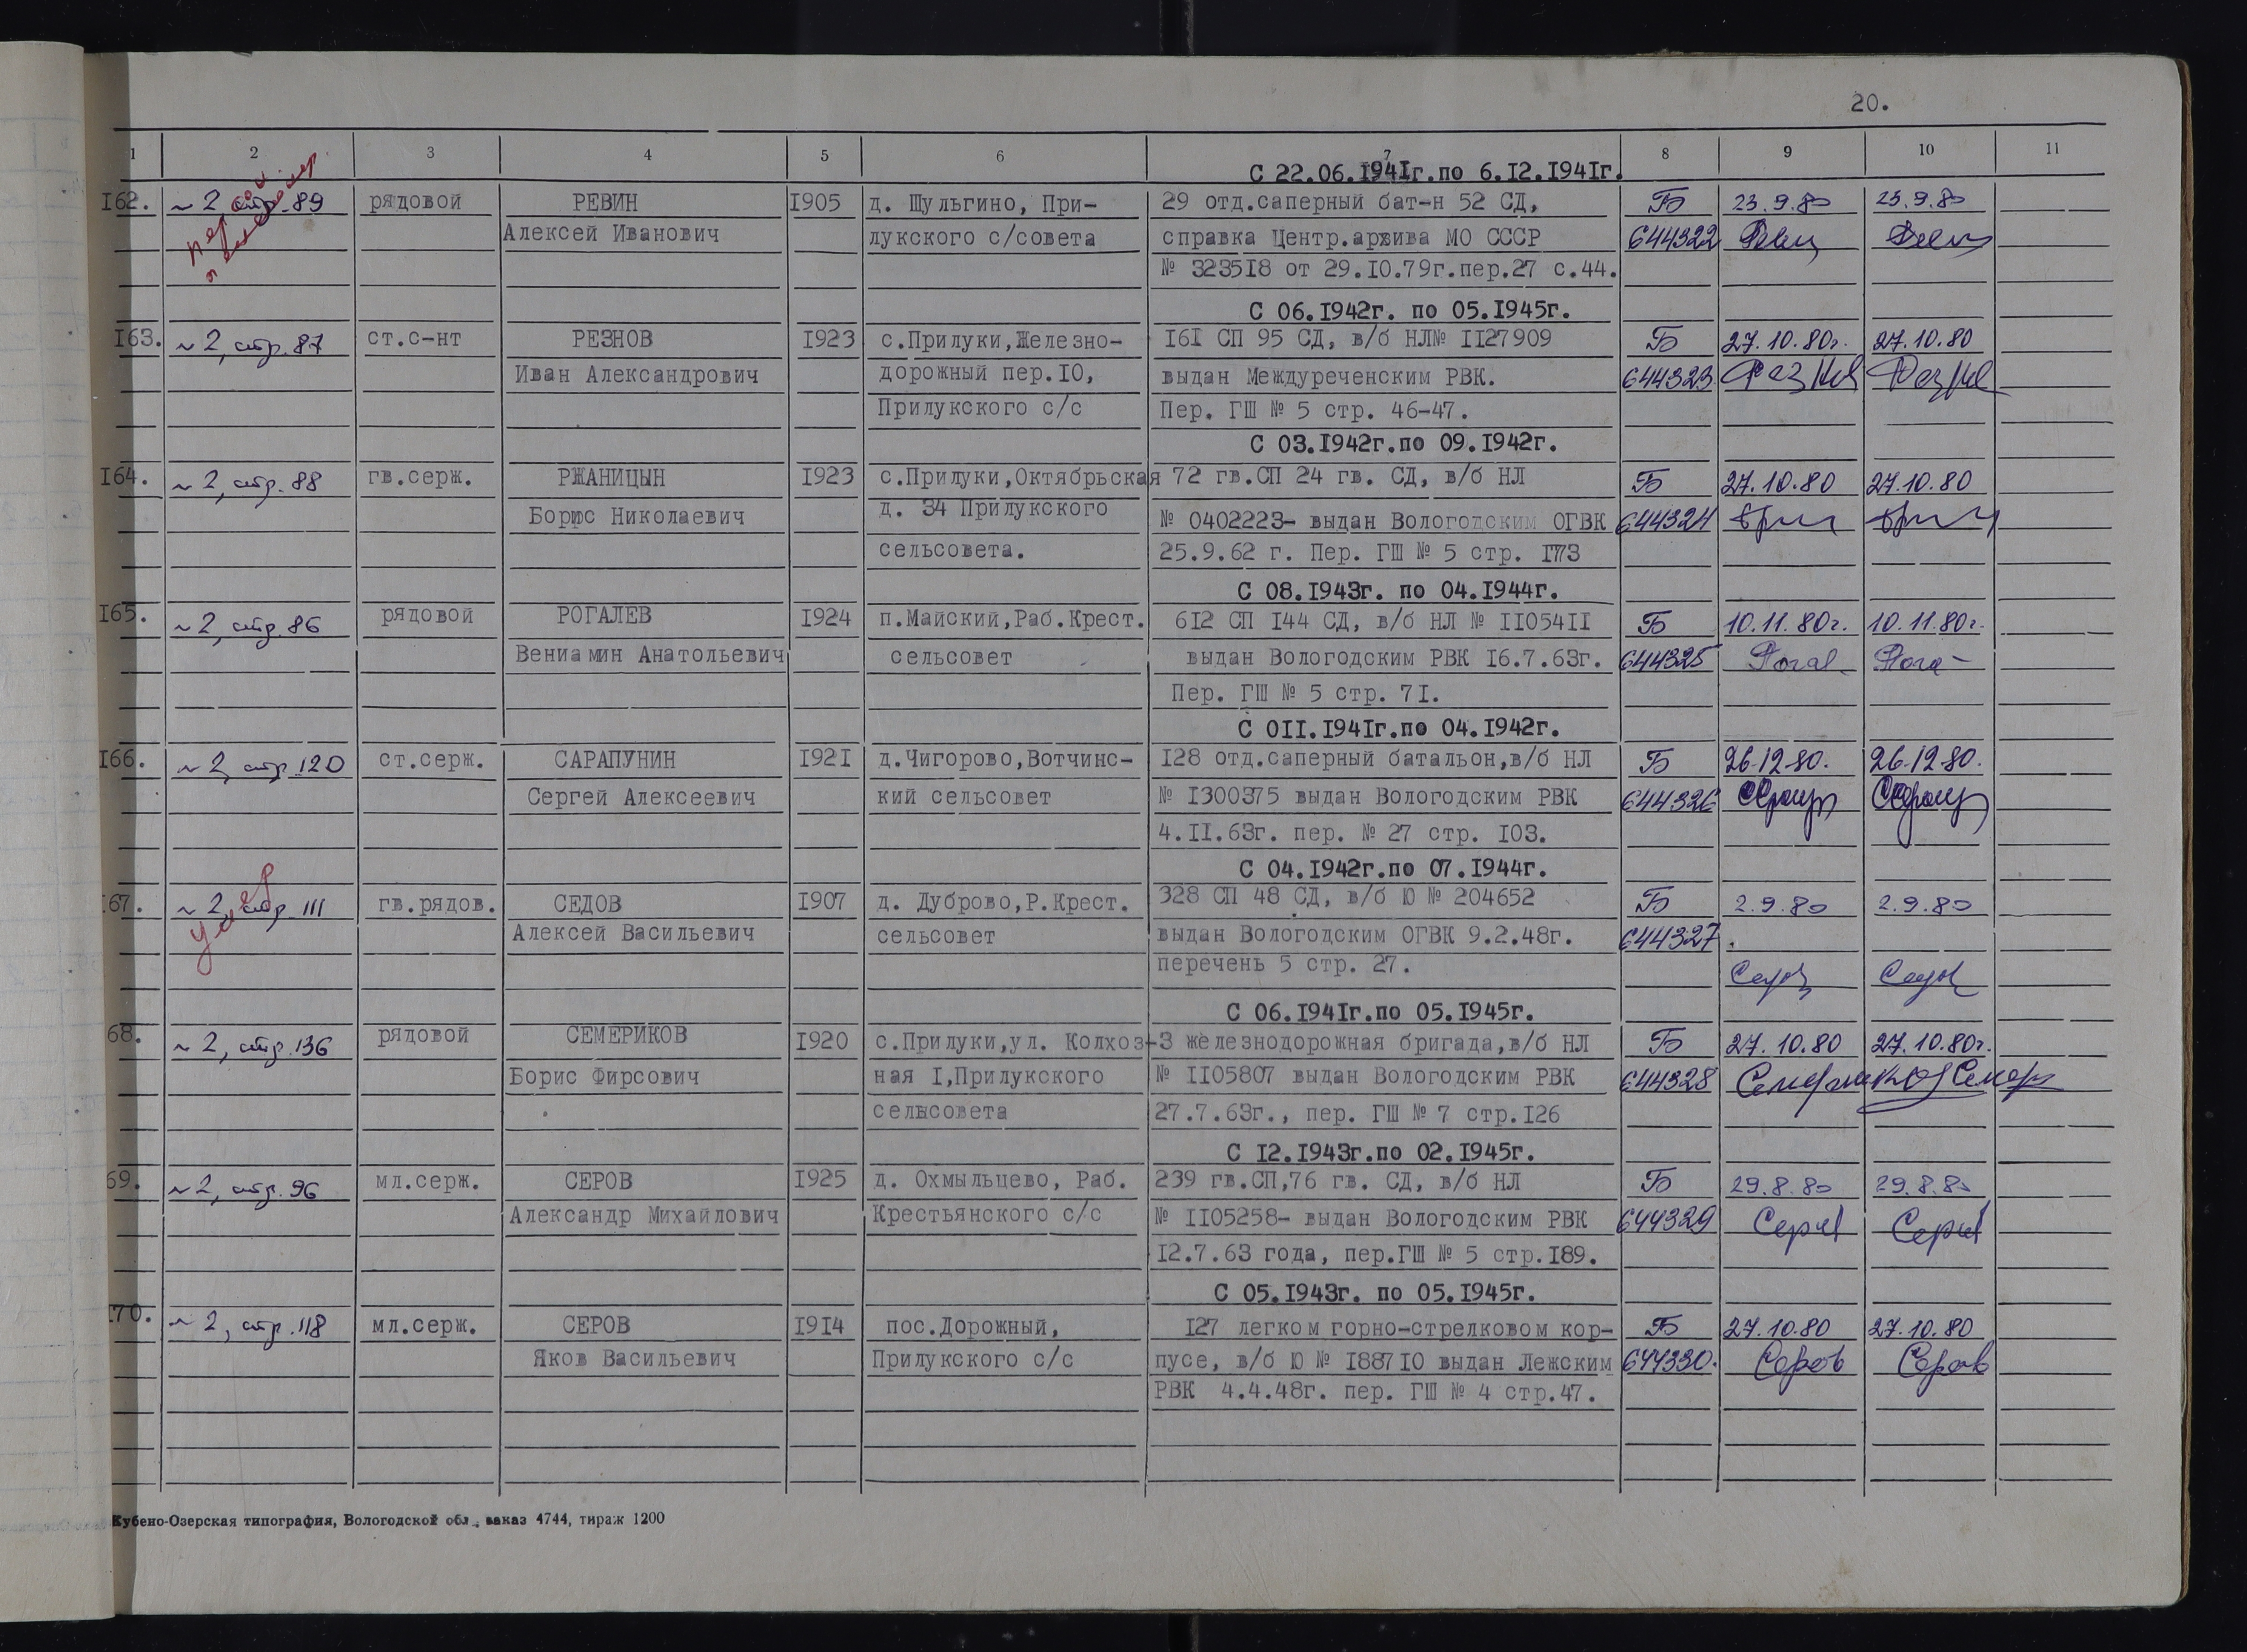 20.
1 2 3 4 5 6 7 8 9 10 11
С 22.06.1941г.по 6.12.1941г.
162. ~ 2 стр. 89 рядовой РЕВИН 1905 д. Шульгино, При- 29 отд.саперный бат-н 52 СД, Б 23.9.80 23.9.80
Алексей Иванович лукского с/совета справка Центр.архива МО СССР 644322
№ 323518 от 29.10.79г.пер.27 с.44.
С 06.1942г. по 05.1945г.
163. ~ 2, стр. 87 ст.с-нт РЕЗНОВ 1923 с.Прилуки,Железно- 161 СП 95 СД, в/б НЛ№ 1127909 Б 27.10.80г. 27.10.80
Иван Александрович дорожный пер.10, выдан Междуреченским РВК. 644323
Прилукского с/с Пер. ГШ № 5 стр. 46-47.
С 03.1942г.по 09.1942г.
164. ~ 2, стр. 88 гв.серж. РЖАНИЦЫН 1923 с.Прилуки,Октябрьская 72 гв.СП 24 гв. СД, в/б НЛ Б 27.10.80 27.10.80
Борис Николаевич д. 34 Прилукского № 0402223- выдан Вологодским ОГВК 644324
сельсовета. 25.9.62 г. Пер. ГШ № 5 стр. 173
С 08.1943г. по 04.1944г.
165. ~ 2, стр. 86 рядовой РОГАЛЕВ 1924 п.Майский,Раб.Крест. 612 СП 144 СД, в/б НЛ № 1105411 Б 10.11.80г. 10.11.80г.
Вениамин Анатольевич сельсовет выдан Вологодским РВК 16.7.63г. 644325
Пер. ГШ № 5 стр. 71.
С 011.1941г.по 04.1942г.
166. ~ 2, стр. 120 ст.серж. САРАПУНИН 1921 д.Чигорово,Вотчинс- 128 отд.саперный батальон,в/б НЛ Б 26.12.80. 26.12.80.
Сергей Алексеевич кий сельсовет № 1300375 выдан Вологодским РВК 644326
4.11.63г. пер. № 27 стр. 103.
С 04.1942г.по 07.1944г.
67. ~ 2, стр. 111 гв.рядов. СЕДОВ 1907 д. Дуброво,Р.Крест. 328 СП 48 СД, в/б Ю № 204652 Б 2.9.80 2.9.80
Алексей Васильевич сельсовет выдан Вологодским ОГВК 9.2.48г. 644327.
перечень 5 стр. 27.
С 06.1941г.по 05.1945г.
68. ~ 2, стр. 136 рядовой СЕМЕРИКОВ 1920 с.Прилуки,ул. Колхоз- 3 железнодорожная бригада,в/б НЛ Б 27.10.80 27.10.80г.
Борис Фирсович ная 1,Прилукского № 1105807 выдан Вологодским РВК 644328
сельсовета 27.7.63г., пер. ГШ № 7 стр.126
С 12.1943г.по 02.1945г.
69. ~ 2, стр. 96 мл.серж. СЕРОВ 1925 д. Охмыльцево, Раб. 239 гв.СП,76 гв. СД, в/б НЛ Б 29.8.80 29.8.80
Александр Михайлович Крестьянского с/с № 1105258- выдан Вологодским РВК 644329
12.7.63 года, пер.ГШ № 5 стр.189.
С 05.1943г. по 05.1945г.
170. ~ 2, стр. 118 мл.серж. СЕРОВ 1914 пос.Дорожный, 127 легком горно-стрелковом кор- Б 27.10.80 27.10.80
Яков Васильевич Прилукского с/с пусе, в/б Ю № 188710 выдан Лежским 644330. Серов Серов
РВК 4.4.48г. пер. ГШ № 4 стр.47.
Кубено-Озерская типография, Вологодской обл., заказ 4744, тираж 1200